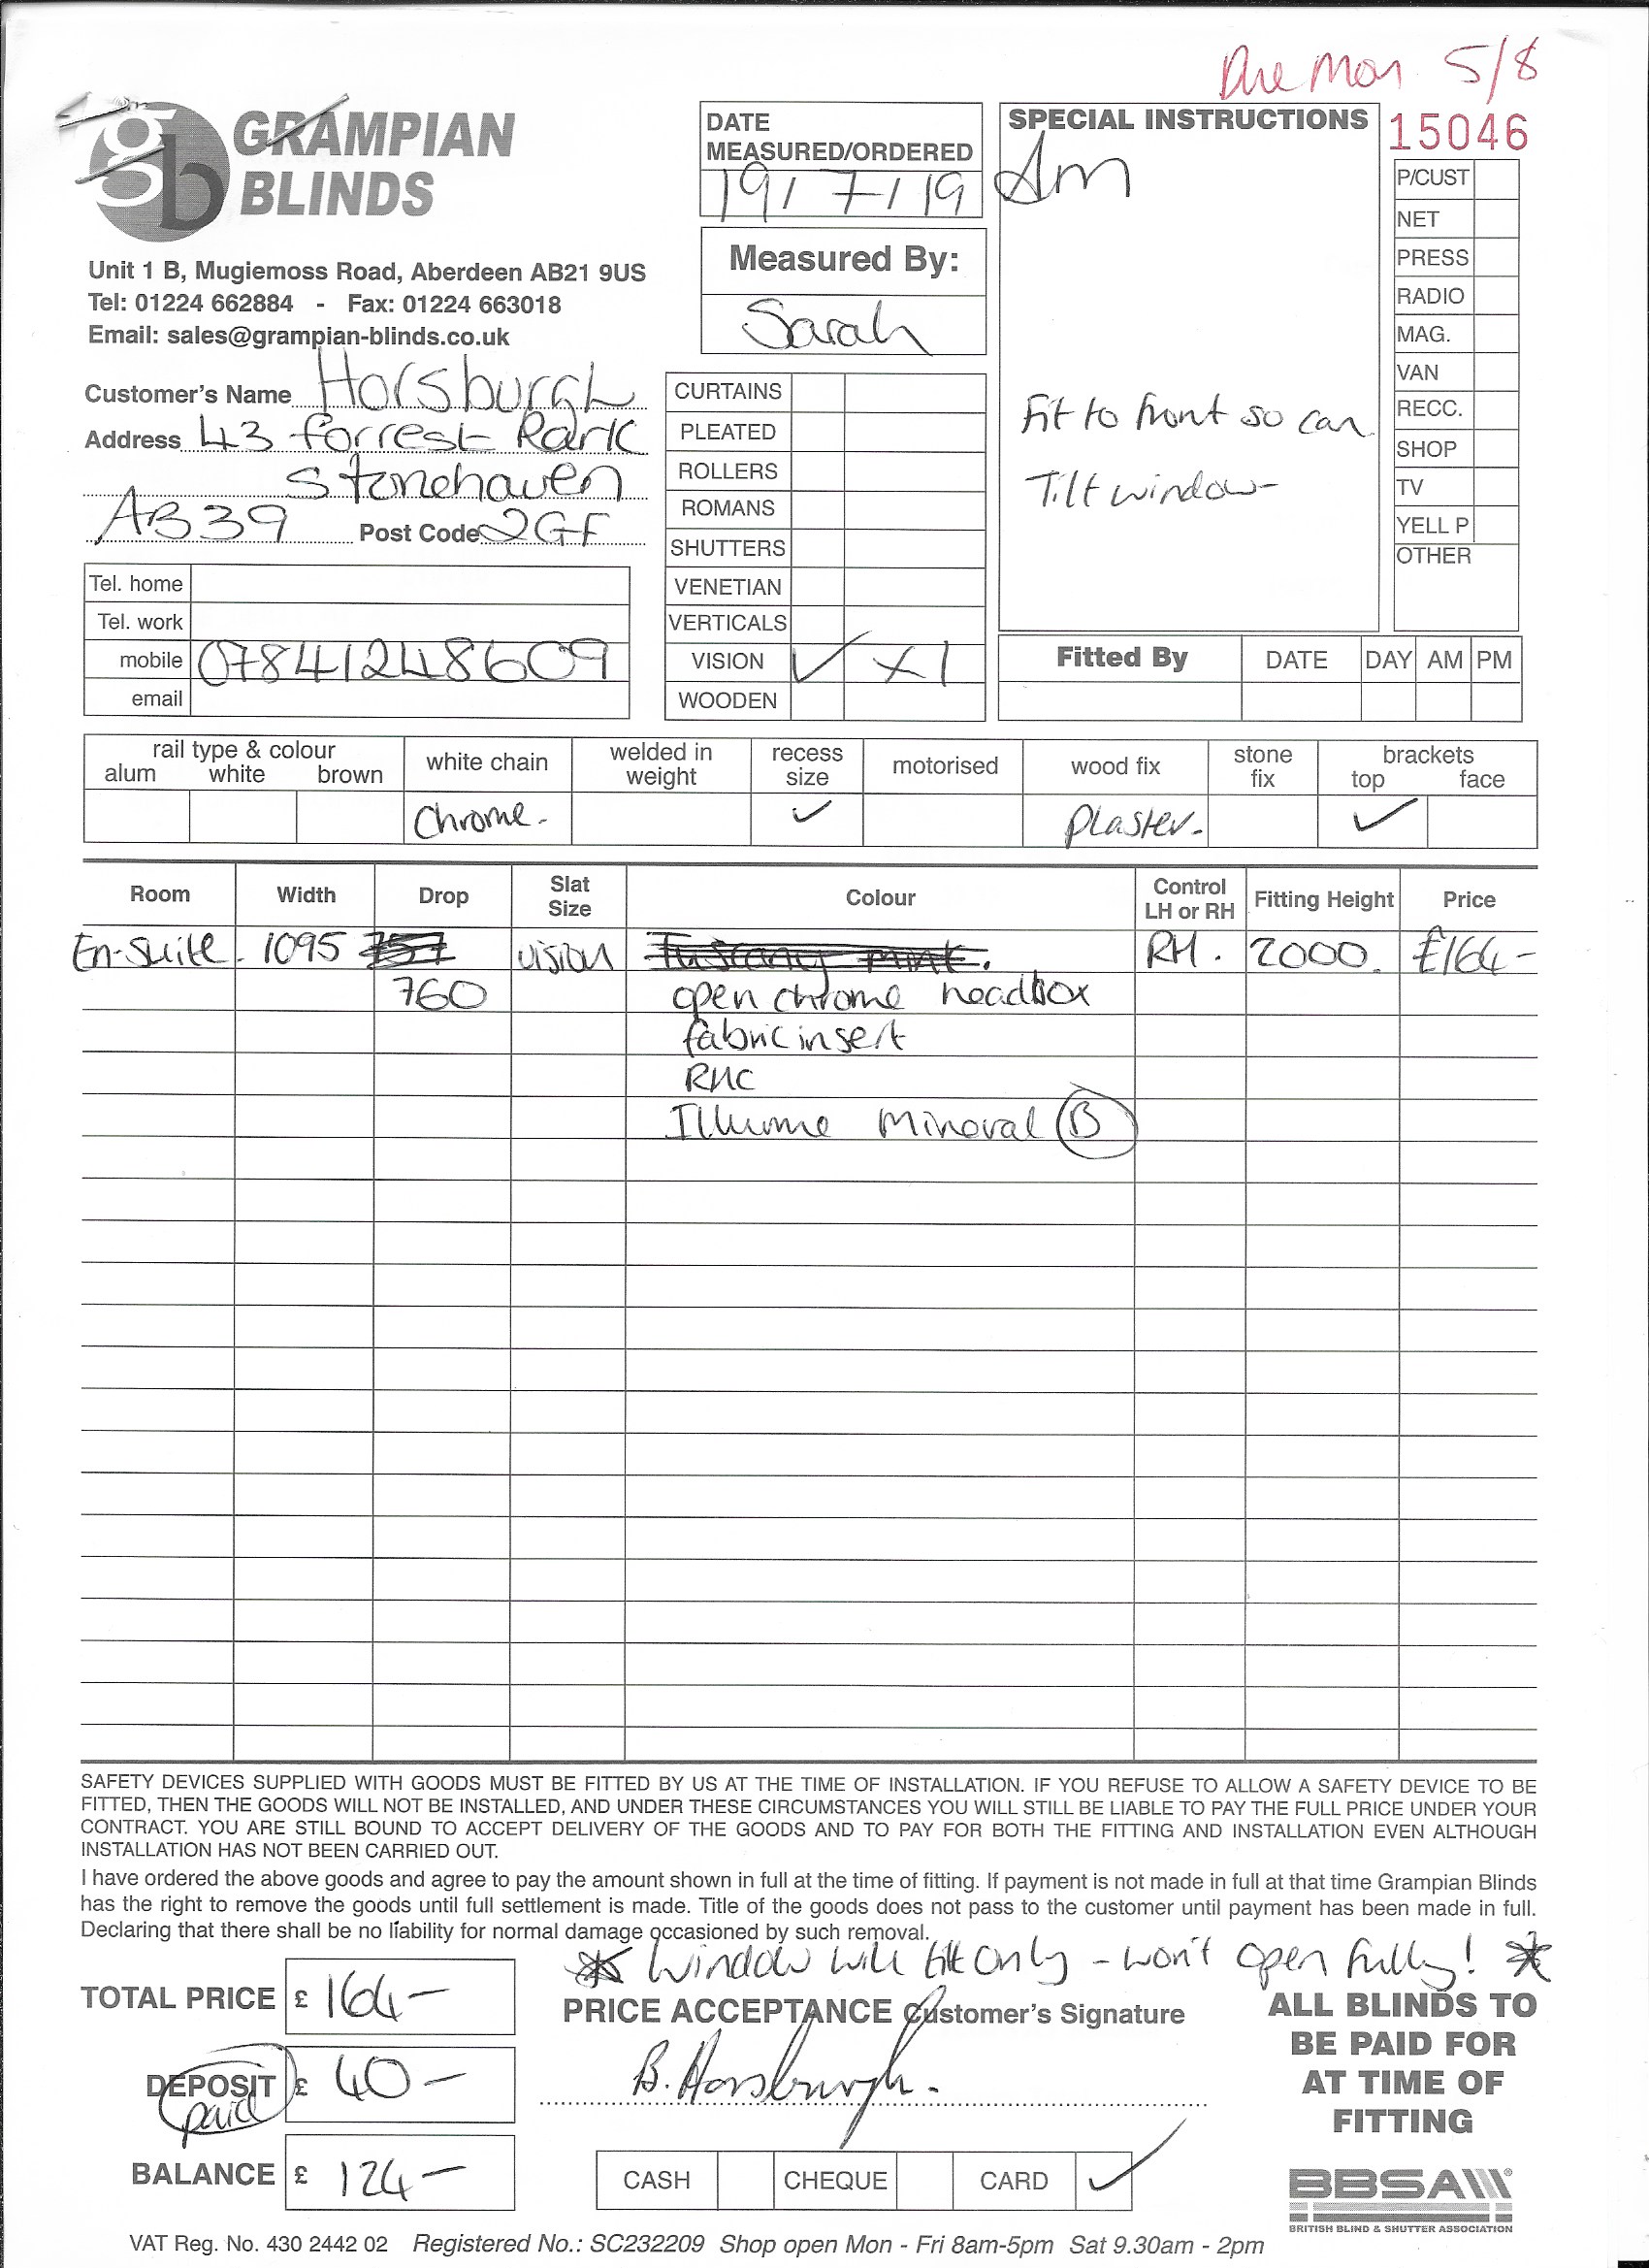 Due Mon 5/8
GRAMPIAN
BLINDS
Unit 1 B, Mugiemoss Road, Aberdeen AB21 9US
Tel: 01224 662884 - Fax: 01224 663018
Email: sales@grampian-blinds.co.uk
DATE
MEASURED/ORDERED
19/7/19
Measured By:
Sarah
SPECIAL INSTRUCTIONS
Am
Fit to front so can
Tilt window
15046
P/CUST
NET
PRESS
RADIO
MAG.
VAN
RECC.
SHOP
TV
YELL P
OTHER
Customer's Name Horsburgh
Address 43 forrest Park
Stonehaven
AB39 Post Code 2GF
Tel. home
Tel. work
mobile 07841248609
email
CURTAINS
PLEATED
ROLLERS
ROMANS
SHUTTERS
VENETIAN
VERTICALS
VISION ✓ x1
WOODEN
Fitted By DATE DAY AM PM
rail type & colour
alum white brown
white chain
Chrome.
welded in
weight
recess
size
✓
motorised
wood fix
plaster.
stone
fix
brackets
top face
✓
Room Width Drop Slat Size Colour Control LH or RH Fitting Height Price
En-Suite. 1095 vision RH. 2000. £164-
760 open chrome headbox
fabric insert
RHC
Illume Mineral B
SAFETY DEVICES SUPPLIED WITH GOODS MUST BE FITTED BY US AT THE TIME OF INSTALLATION. IF YOU REFUSE TO ALLOW A SAFETY DEVICE TO BE
FITTED, THEN THE GOODS WILL NOT BE INSTALLED, AND UNDER THESE CIRCUMSTANCES YOU WILL STILL BE LIABLE TO PAY THE FULL PRICE UNDER YOUR
CONTRACT. YOU ARE STILL BOUND TO ACCEPT DELIVERY OF THE GOODS AND TO PAY FOR BOTH THE FITTING AND INSTALLATION EVEN ALTHOUGH
INSTALLATION HAS NOT BEEN CARRIED OUT.
I have ordered the above goods and agree to pay the amount shown in full at the time of fitting. If payment is not made in full at that time Grampian Blinds
has the right to remove the goods until full settlement is made. Title of the goods does not pass to the customer until payment has been made in full.
Declaring that there shall be no liability for normal damage occasioned by such removal.
* Window will tilt only - won't open fully! *
TOTAL PRICE £ 164-
DEPOSIT £ 40-
paid
BALANCE £ 124-
PRICE ACCEPTANCE Customer's Signature
B. Horsburgh.
CASH CHEQUE CARD ✓
ALL BLINDS TO
BE PAID FOR
AT TIME OF
FITTING
BBSA
BRITISH BLIND & SHUTTER ASSOCIATION
VAT Reg. No. 430 2442 02 Registered No.: SC232209 Shop open Mon - Fri 8am-5pm Sat 9.30am - 2pm